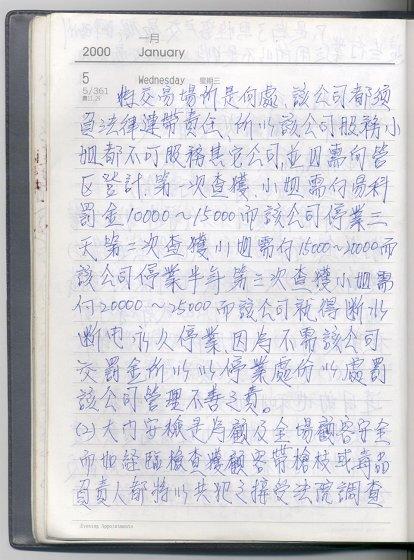 一月
2000 January
5 Wednesday 星期三
5/361
將交易場所是何處，該公司都須
負法律連帶責任，所以該公司服務小
姐都不可服務其它公司，並因需向管
區登計，第一次查獲，小姐需付易科
罰金10000～15000而該公司停業三
天第二次查獲小姐需付15000～20000而
該公司停業半年第三次查獲小姐需
付20000～25000而該公司就得斷水
斷电永久停業，因為不需該公司
交罰金所以以停業處份以處罰
該公司管理不善之責。
(2)大內安檢是為顧及全場顧客安全
而如経臨檢查獲顧客帶槍枝或毒品
負責人都將以共犯之接受法院調查
Evening Appointments